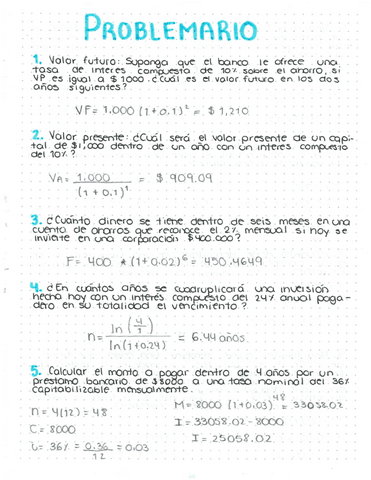 PROBLEMARIO
1. Valor futuro: Suponga que el banco le ofrece una
tasa de interes compuesta de 10% sobre el ahorro, si
VP es igual a $1000. ¿Cuál es el valor futuro en los dos
años siguientes?
VF = 1.000 (1 + 0.1)² = $ 1,210
2. Valor presente: ¿Cuál será el valor presente de un capi-
tal de $1,000 dentro de un año con un interes compuesto
del 10%?
VA = 1.000 / (1 + 0.1)¹ = $ 909.09
3. ¿Cuánto dinero se tiene dentro de seis meses en una
cuenta de ahorros que reconoce el 2% mensual si hoy se
invierte en una corporación $400.000?
F = 400 * (1 + 0.02)⁶ = 450.4649
4. ¿En cuántos años se cuadruplicará una inversión
hecha hoy con un interés compuesto del 24% anual paga-
dero en su totalidad el vencimiento?
n = ln (4/1) / ln(1+0.24) = 6.44 años
5. Calcular el monto a pagar dentro de 4 años por un
prestamo bancario de $8000 a una tasa nominal del 36%
capitabilizable mensualmente.
n = 4(12) = 48
C = 8000
i = 36% = 0.36 / 12 = 0.03
M = 8000 (1+0.03)⁴⁸ = 33058.02
I = 33058.02 - 8000
I = 25058.02